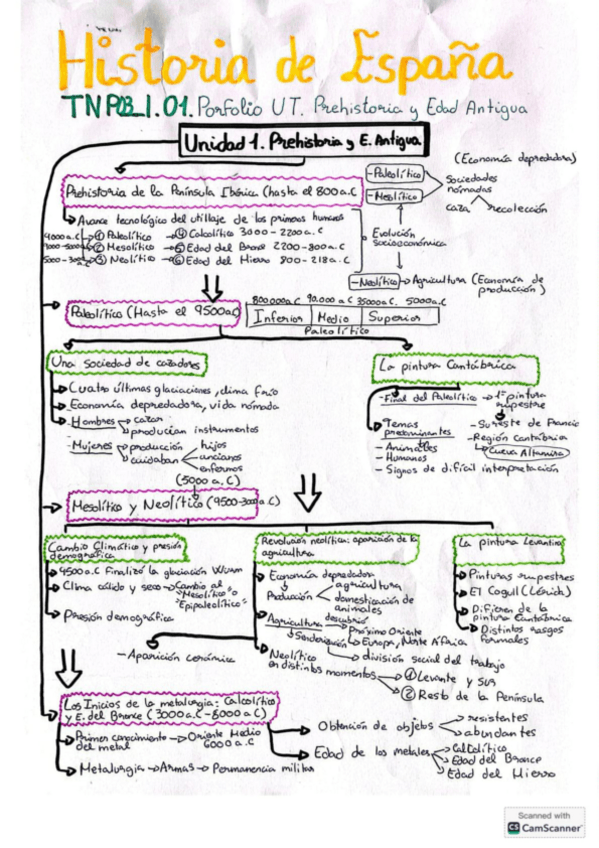 Historia de España
TNP03_1.01. Porfolio UT. Prehistoria y Edad Antigua
Unidad 1. Prehistoria y E. Antigua
(Economía depredadora)
Prehistoria de la Península Ibérica (hasta el 800 a.C
- Paleolítico
- Mesolítico
Sociedades nómadas
caza
recolección
Avance tecnológico del utillaje de los primeros humanos
① Paleolítico ④ Calcolítico 3000-2200 a.C
② Mesolítico ⑤ Edad del Bronce 2200-800 a.C
③ Neolítico ⑥ Edad del Hierro 800-218 a.C
Evolución socioeconómica
- Neolítico → Agricultura (Economía de producción)
Paleolítico (Hasta el 9500 a.C
800000 a.C 90.000 a.C 35000 a.C. 5000 a.C
Inferior Medio Superior
Paleolítico
Una sociedad de cazadores
Cuatro últimas glaciaciones, clima frío
Economía depredadora, vida nómada
- Hombres cazar
producían instrumentos
- Mujeres producción hijos
cuidaban ancianos
enfermos
La pintura Cantábrica
- Final del Paleolítico → 1ª pintura rupestre
- Sureste de Francia
- Región Cantábrica
Cueva Altamira
Temas predominantes
- Animales
- Humanos
- Signos de difícil interpretación
(5000 a.C)
Mesolítico y Neolítico (9500-3000 a.C)
Cambio Climático y presión demográfica
9500 a.C Finalizó la glaciación Würm
Clima cálido y seco → Cambio al
"Mesolítico" o
"Epipaleolítico"
Presión demográfica
Revolución neolítica: aparición de la agricultura
Economía depredador
Producción agricultura
domesticación de animales
Agricultura descubrió Próximo Oriente
Europa, Norte África
- Aparición cerámica
división social del trabajo
Neolítico en distintos momentos ① Levante y sur
② Resto de la Península
La pintura Levantina
Pinturas rupestres
El Cogull (Lérida)
Difieren de la pintura Cantábrica
Distintos rasgos formales
Los Inicios de la metalurgia: Calcolítico
y E. del Bronce (3000 a.C - 8000 a C)
Primer conocimiento del metal → Oriente Medio
6000 a.C
Metalurgia → Armas → Permanencia militar
Obtención de objetos resistentes
abundantes
Edad de los metales Calcolítico
Edad del Bronce
Edad del Hierro
Scanned with
CS CamScanner